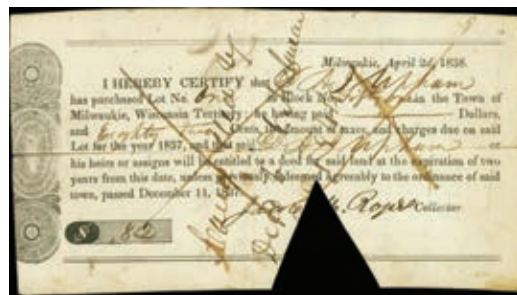 Milwaukie, April 2d, 1838.
I HEREBY CERTIFY that D. A. J. Upham
has purchased Lot No. One in Block No. in the Town of
Milwaukie, Wisconsin Territory, he having paid Dollars,
and Eighty two Cents, the amount of taxes, and charges due on said
Lot for the year 1837, and that said Upham or
his heirs or assigns will be entitled to a deed for said land at the expiration of two
years from this date, unless previously redeemed agreeably to the ordinance of said
town, passed December 11, 1837.
Collector
$ .82